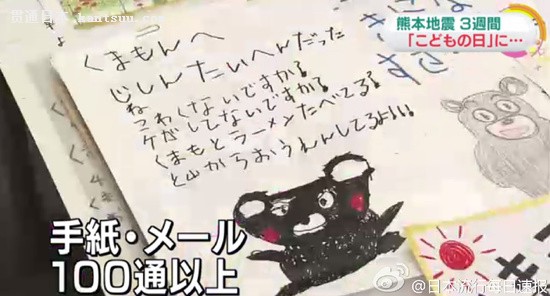 贯通日本 www.kantsuu.com
熊本地震 3週間
「こどもの日」に…
くまもんへ
じしんたいへんだった
ね
こわくないですか?
ケがしてないですか?
くまもとラーメンたべてる?
と山からおうえんしてるよ!!!
手紙・メール
100通以上
@日本流行每日速报